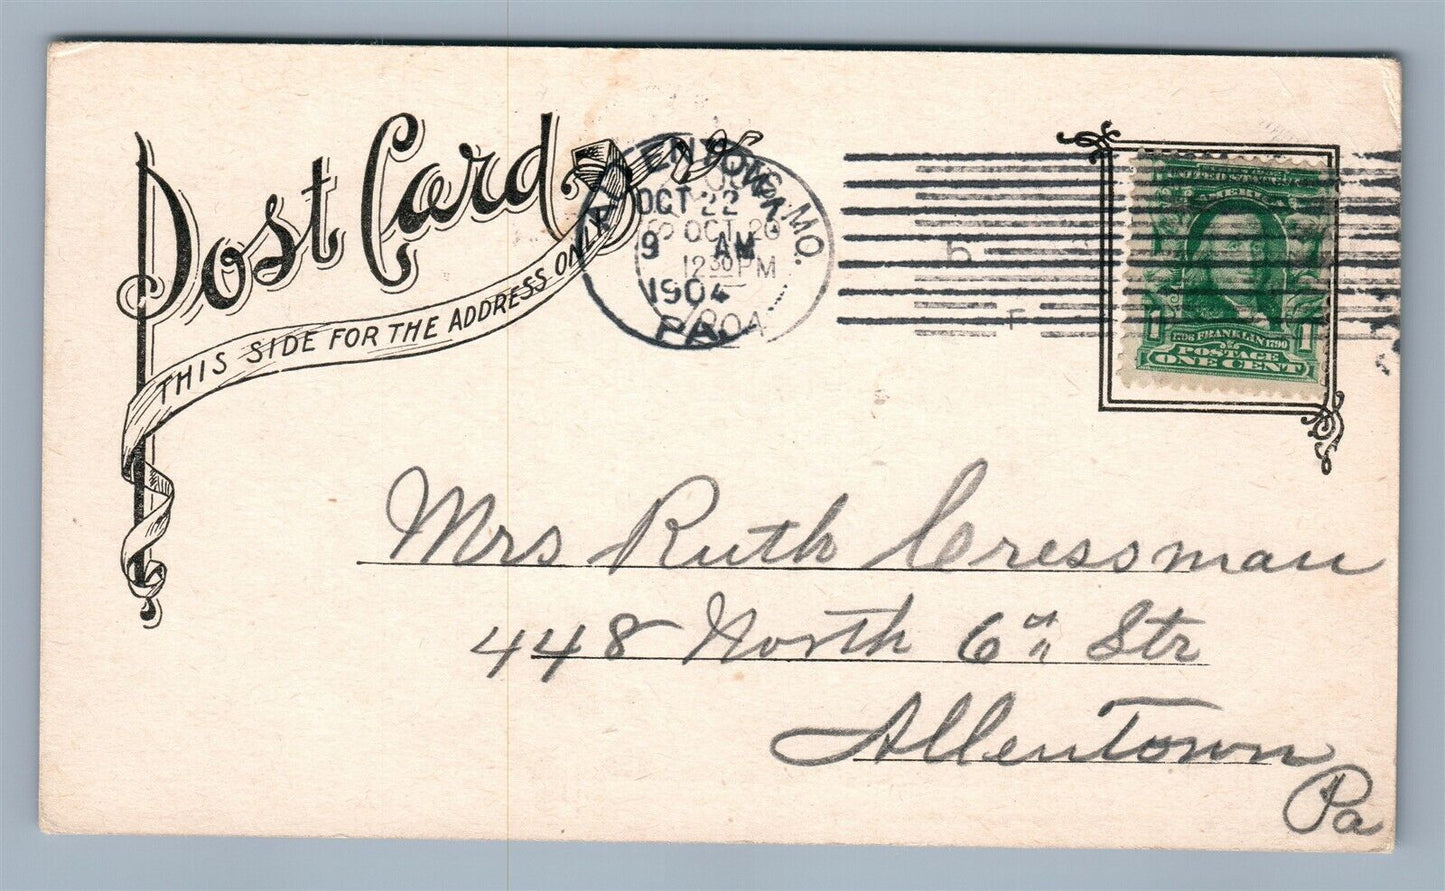 Post Card
THIS SIDE FOR THE ADDRESS ONLY
OCT 22
9 AM
1904
PA.
MO.
OCT 20
12 30 PM
UNITED STATES
1706 FRANKLIN 1790
POSTAGE
1 1
ONE CENT
Mrs Ruth Cressman
448 North 6th Str
Allentown
Pa